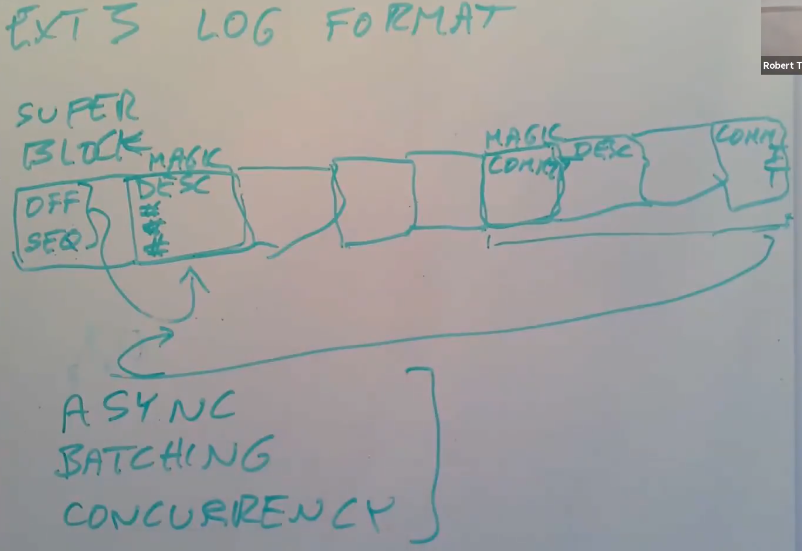 EXT3 LOG FORMAT
SUPER
BLOCK
MAGIC
OFF
SEQ
DESC
#
#
#
MAGIC
COMMIT
DESC
COMMIT
ASYNC
BATCHING
CONCURRENCY
Robert T